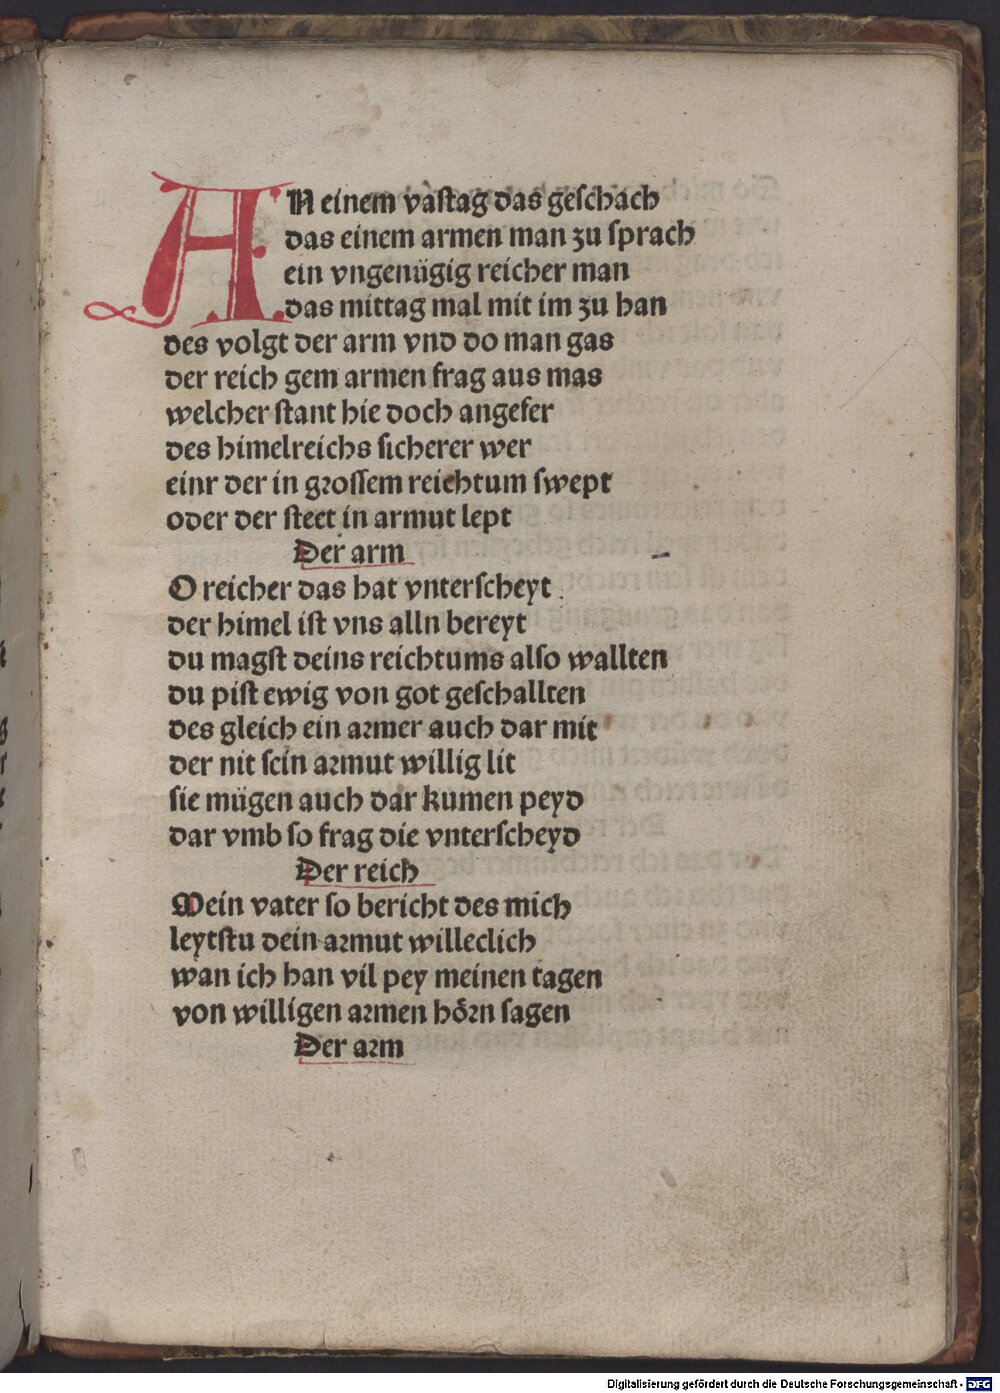 AN einem vaſtag das geſchach
das einem armen man zu ſprach
ein vngenügig reicher man
das mittag mal mit im zu han
des volgt der arm vnd do man gas
der reich gem armen frag aus mas
welcher ſtant hie doch angefer
des himelreichs ſicherer wer
einr der in groſſem reichtum ſwept
oder der ſteet in armut lept
Der arm
O reicher das hat vnterſcheyt
der himel iſt vns alln bereyt
du magſt deins reichtums alſo wallten
du piſt ewig von got geſchallten
des gleich ein armer auch dar mit
der nit ſein armut willig lit
ſie mügen auch dar kumen peyd
dar vmb ſo frag die vnterſcheyd
Der reich
Mein vater ſo bericht des mich
leytſtu dein armut willeclich
wan ich han vil pey meinen tagen
von willigen armen hörn ſagen
Der arm
Digitalisierung gefördert durch die Deutsche Forschungsgemeinschaft - DFG